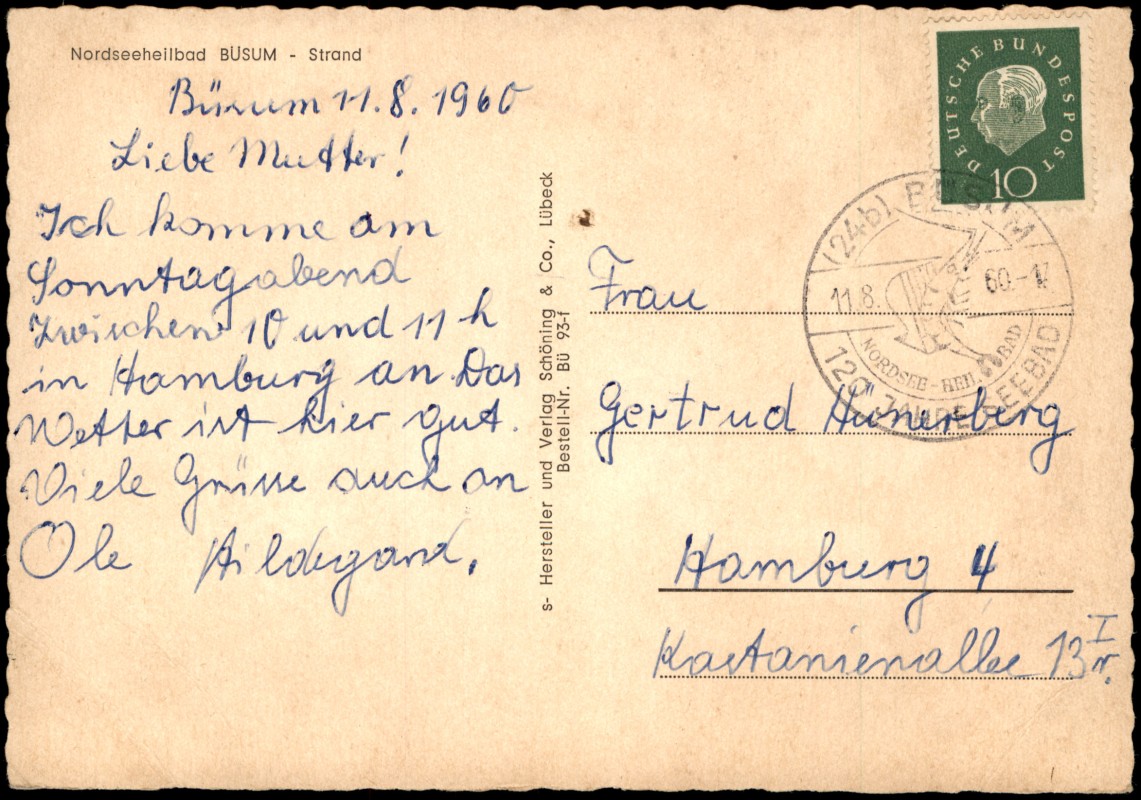 Nordseeheilbad BÜSUM - Strand
Büsum 11.8.1960
Liebe Mutter!
Ich komme am
Sonntagabend
zwischen 10 und 11 h
in Hamburg an. Das
Wetter ist hier gut.
Viele Grüsse auch an
Ole Hildegard.
s- Hersteller und Verlag Schöning & Co., Lübeck
Bestell-Nr. Bü 93-f
DEUTSCHE BUNDESPOST
10
(24b) BÜSUM
11.8. 60.-17
NORDSEE-HEILBAD
120 JAHRE SEEBAD
Frau
Gertrud Hünerberg
Hamburg 4
Kastanienallee 13 I r.